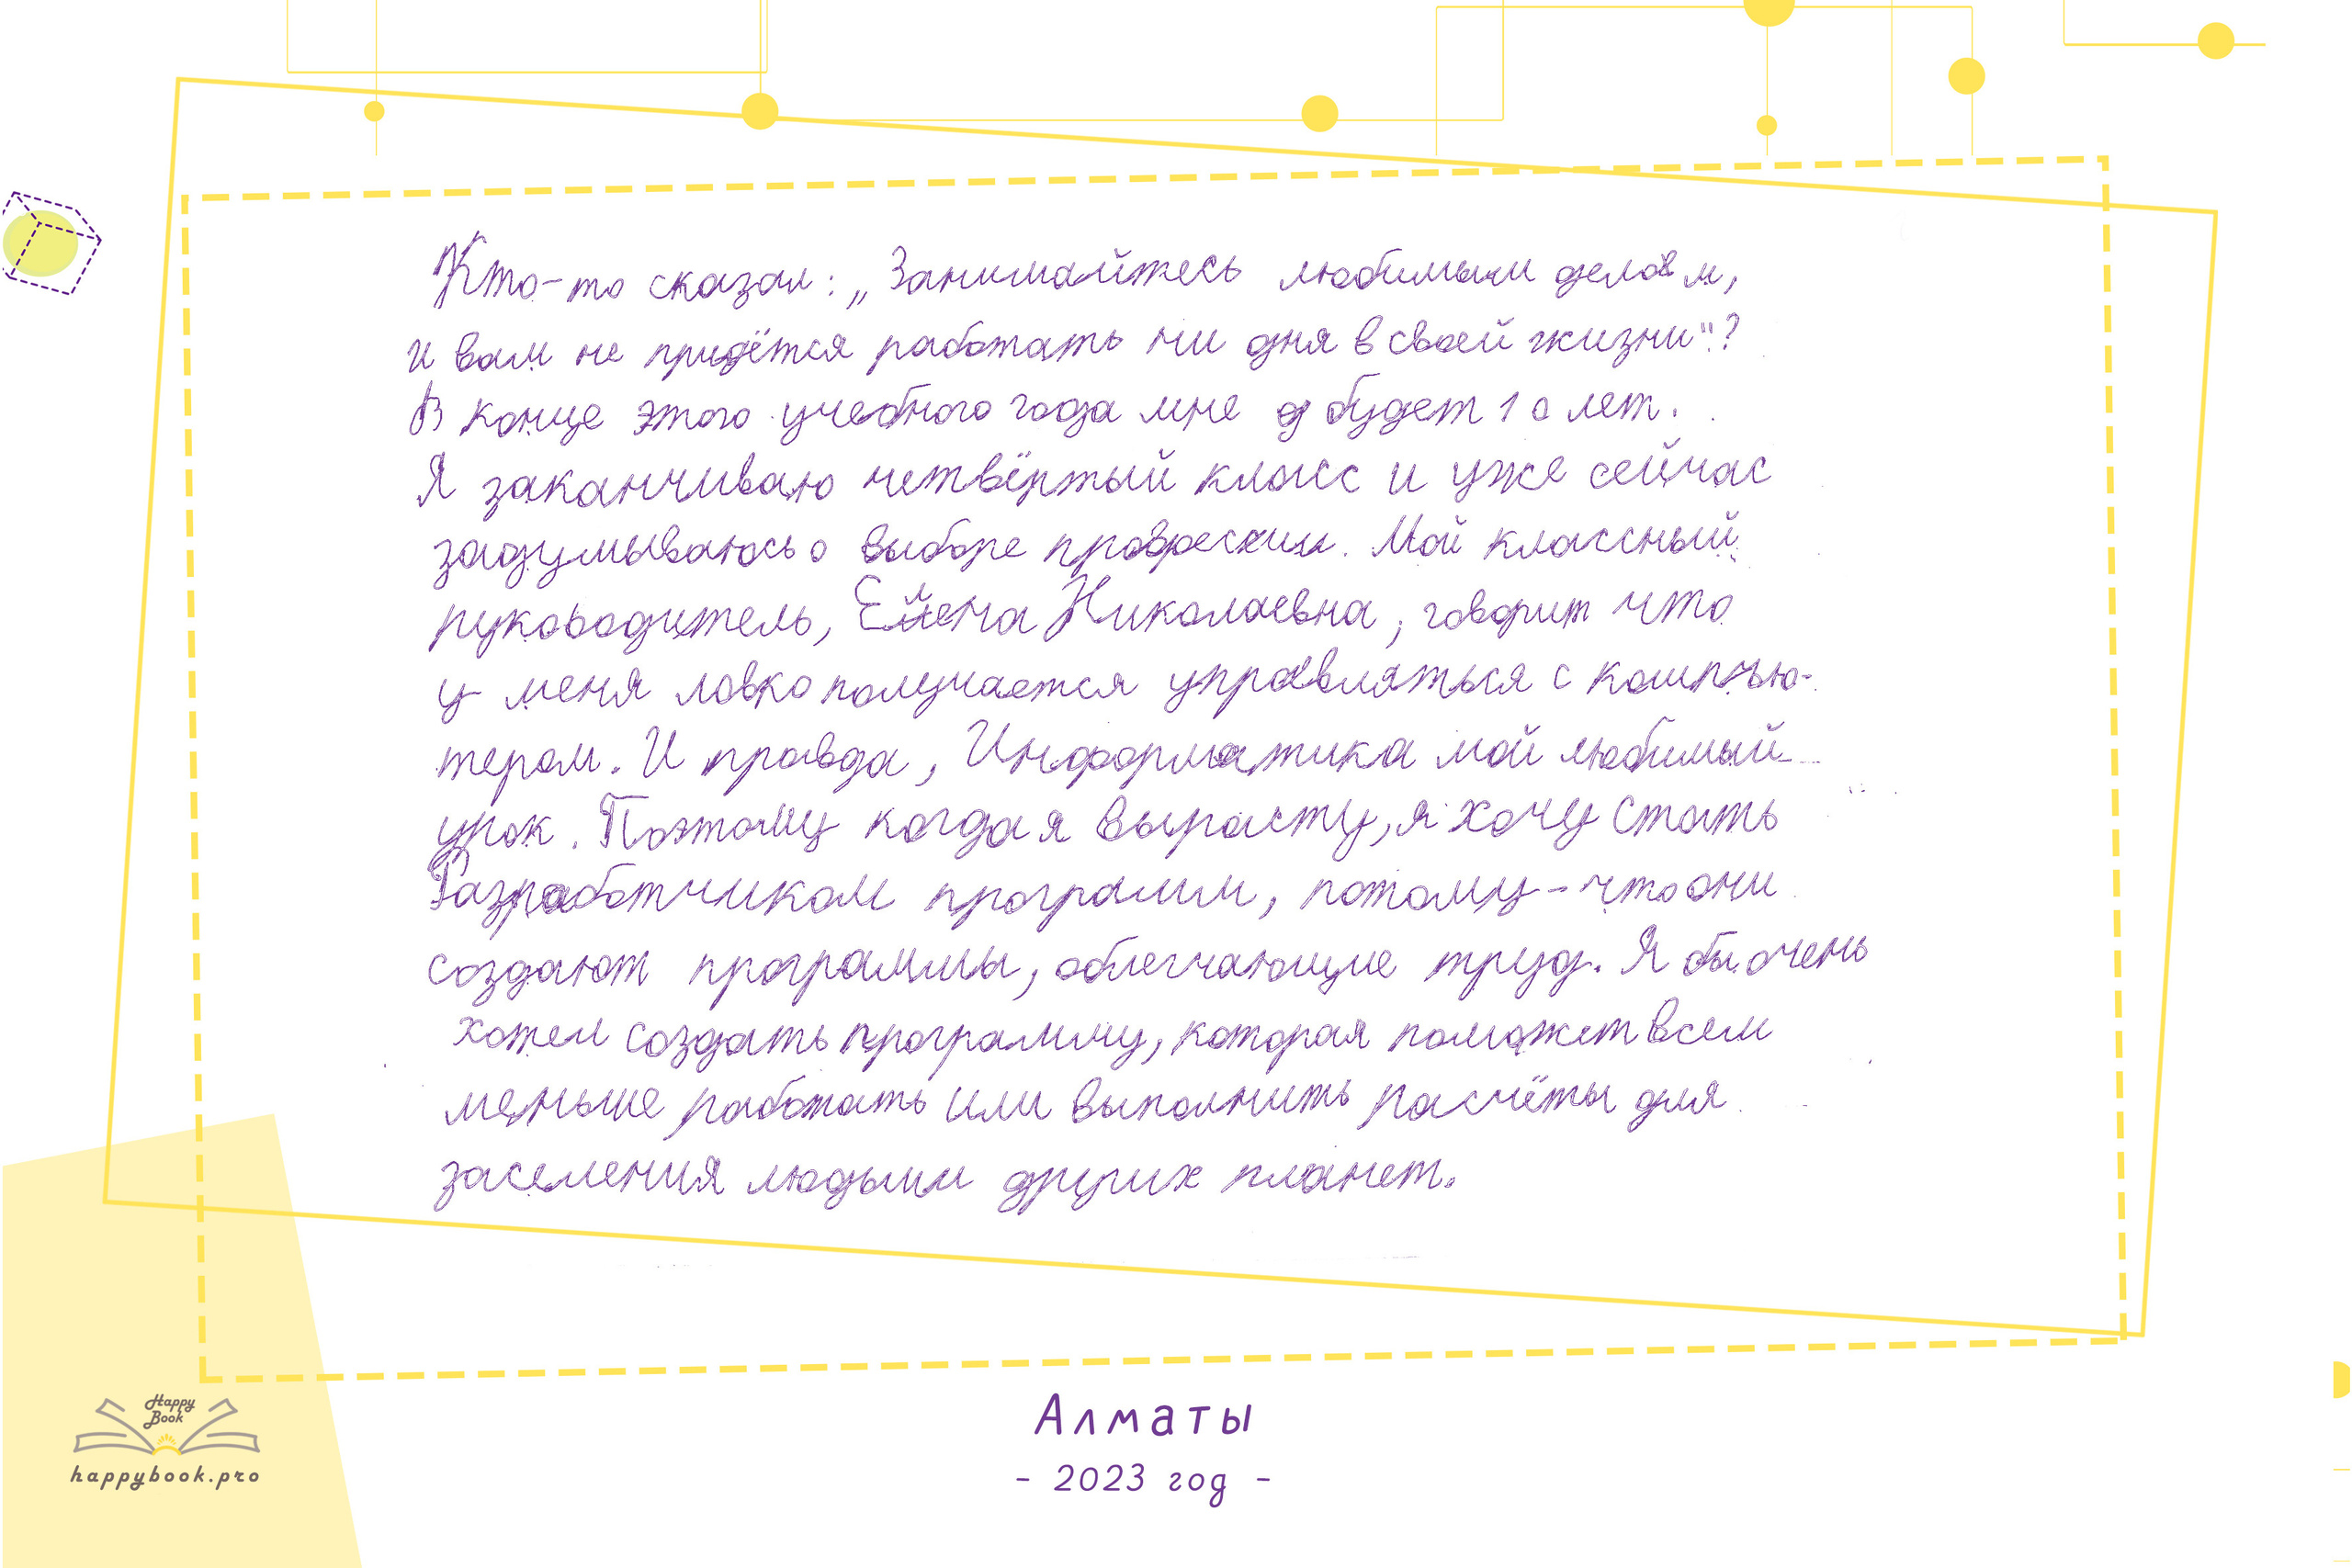 Кто-то сказал: „Занимайтесь любимым делом,
и вам не придётся работать ни дня в своей жизни"?
В конце этого учебного года мне будет 10 лет.
Я заканчиваю четвёртый класс и уже сейчас
задумываюсь о выборе професии. Мой классный
руководитель, Елена Николаевна, говорит что
у меня ловко получается управляться с компью-
тером. И правда, Информатика мой любимый
урок. Поэтому когда я вырасту, я хочу стать
Разработчиком программ, потому-что они
создают программы, облегчающие труд. Я бы очень
хотел создать программу, которая поможет всем
меньше работать или выполнить расчёты для
заселения людьми других планет.
Алматы
- 2023 год -
Happy
Book
happybook.pro